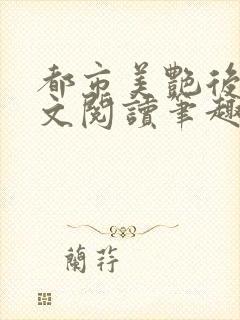 都市美艷後
文閱讀筆趣
蘭荇